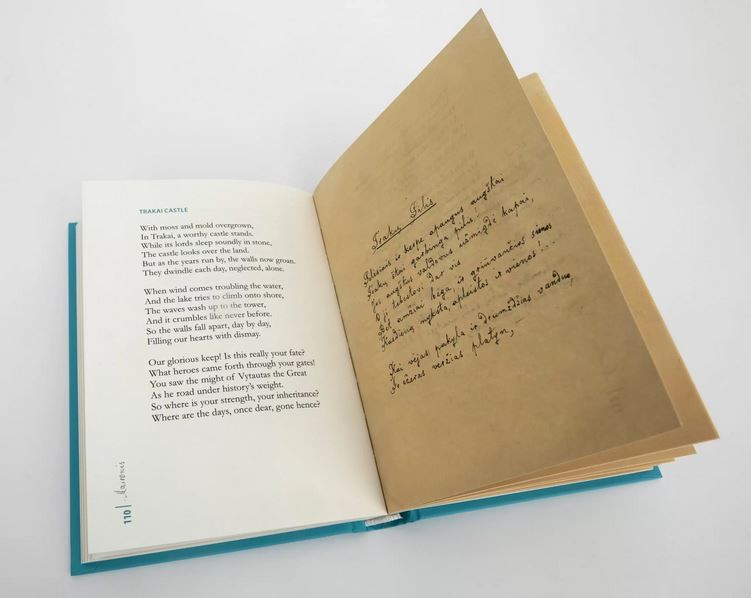 TRAKAI CASTLE
With moss and mold overgrown,
In Trakai, a worthy castle stands.
While its lords sleep soundly in stone,
The castle looks over the land.
But as the years run by, the walls now groan.
They dwindle each day, neglected, alone.
When wind comes troubling the water,
And the lake tries to climb onto shore,
The waves wash up to the tower,
And it crumbles like never before.
So the walls fall apart, day by day,
Filling our hearts with dismay.
Our glorious keep! Is this really your fate?
What heroes came forth through your gates!
You saw the might of Vytautas the Great
As he rode under history's weight.
So where is your strength, your inheritance?
Where are the days, once dear, gone hence?
110 | Maironis
Trakų Pilis
Pelėsiais ir kerpe apaugus augštai
Trakų štai garbinga pilis!
Jos augštus valdovus užmigdė kapai,
O ji tebestovi dar vis.
Bet amžiai bėga, ir griuvančios sienos
Kasdieną nyksta, apleistos ir vienos!...
Kai vėjas pakyla ir drumzdžias vanduo,
Ir ežeras veržias platyn,